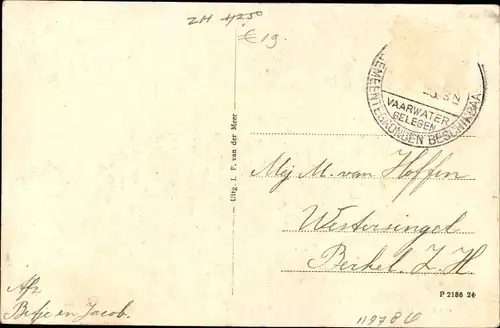 ZH 42,50
€19.
VAARWATER
GELEGEN
GEMEENTEGRONDEN BESCHIKBAAR
Uitg. I. F. van der Meer
Mej M. van Hoffen
Westersingel
Berkel. Z. H.
Afz
Betje en Jacob.
P 2186 24